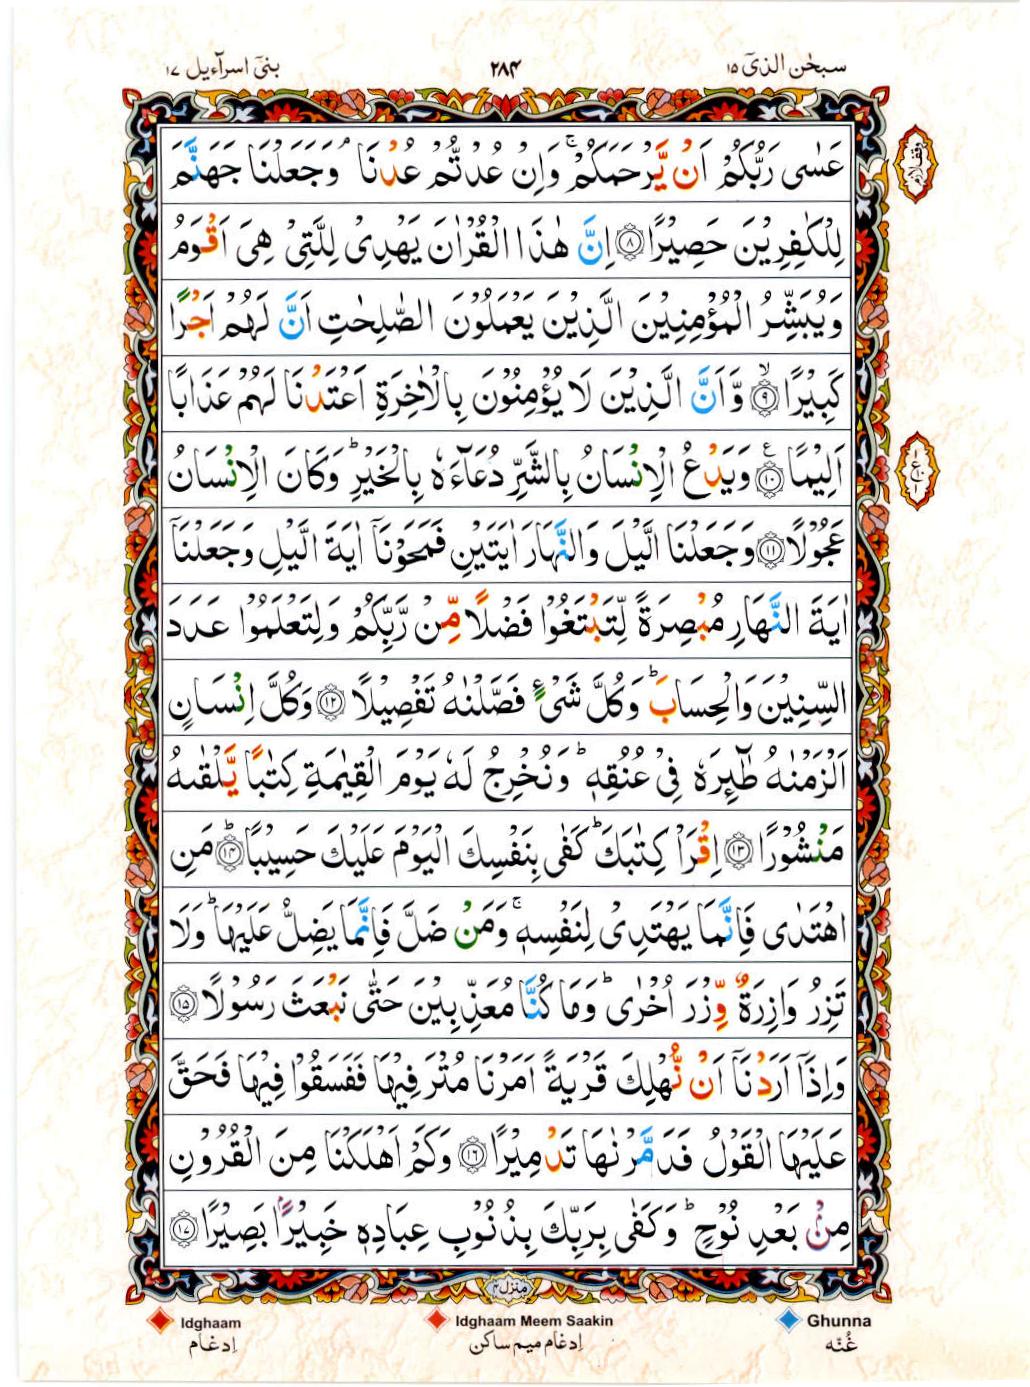 سبحٰن الذیٓ ۱۵
۲۸۴
بنیٓ اسرآءیل ۱۷
عَسٰی رَبُّكُمْ اَنْ یَّرْحَمَكُمْ ۚ وَاِنْ عُدْتُّمْ عُدْنَا ۘ وَجَعَلْنَا جَهَنَّمَ
لِلْكٰفِرِیْنَ حَصِیْرًا ﴿۸﴾ اِنَّ هٰذَا الْقُرْاٰنَ یَهْدِیْ لِلَّتِیْ هِیَ اَقْوَمُ
وَیُبَشِّرُ الْمُؤْمِنِیْنَ الَّذِیْنَ یَعْمَلُوْنَ الصّٰلِحٰتِ اَنَّ لَهُمْ اَجْرًا
كَبِیْرًا ۙ﴿۹﴾ وَّاَنَّ الَّذِیْنَ لَا یُؤْمِنُوْنَ بِالْاٰخِرَةِ اَعْتَدْنَا لَهُمْ عَذَابًا
اَلِیْمًا ﴿۱۰﴾ع وَیَدْعُ الْاِنْسَانُ بِالشَّرِّ دُعَآءَهٗ بِالْخَیْرِ ؕ وَكَانَ الْاِنْسَانُ
عَجُوْلًا ﴿۱۱﴾ وَجَعَلْنَا الَّیْلَ وَالنَّهَارَ اٰیَتَیْنِ فَمَحَوْنَاۤ اٰیَةَ الَّیْلِ وَجَعَلْنَاۤ
اٰیَةَ النَّهَارِ مُبْصِرَةً لِّتَبْتَغُوْا فَضْلًا مِّنْ رَّبِّكُمْ وَلِتَعْلَمُوْا عَدَدَ
السِّنِیْنَ وَالْحِسَابَ ؕ وَكُلَّ شَیْءٍ فَصَّلْنٰهُ تَفْصِیْلًا ﴿۱۲﴾ وَكُلَّ اِنْسَانٍ
اَلْزَمْنٰهُ طٰٓئِرَهٗ فِیْ عُنُقِهٖ ؕ وَنُخْرِجُ لَهٗ یَوْمَ الْقِیٰمَةِ كِتٰبًا یَّلْقٰىهُ
مَنْشُوْرًا ﴿۱۳﴾ اِقْرَاْ كِتٰبَكَ ؕ كَفٰی بِنَفْسِكَ الْیَوْمَ عَلَیْكَ حَسِیْبًا ؕ﴿۱۴﴾ مَنِ
اهْتَدٰی فَاِنَّمَا یَهْتَدِیْ لِنَفْسِهٖ ۚ وَمَنْ ضَلَّ فَاِنَّمَا یَضِلُّ عَلَیْهَا ؕ وَلَا
تَزِرُ وَازِرَةٌ وِّزْرَ اُخْرٰی ؕ وَمَا كُنَّا مُعَذِّبِیْنَ حَتّٰی نَبْعَثَ رَسُوْلًا ﴿۱۵﴾
وَاِذَاۤ اَرَدْنَاۤ اَنْ نُّهْلِكَ قَرْیَةً اَمَرْنَا مُتْرَفِیْهَا فَفَسَقُوْا فِیْهَا فَحَقَّ
عَلَیْهَا الْقَوْلُ فَدَمَّرْنٰهَا تَدْمِیْرًا ﴿۱۶﴾ وَكَمْ اَهْلَكْنَا مِنَ الْقُرُوْنِ
مِنْۢ بَعْدِ نُوْحٍ ؕ وَكَفٰی بِرَبِّكَ بِذُنُوْبِ عِبَادِهٖ خَبِیْرًۢا بَصِیْرًا ﴿۱۷﴾
منزل ۴
Idghaam
Idghaam Meem Saakin
Ghunna
اِدغام
اِدغام میم ساکن
غُنّه